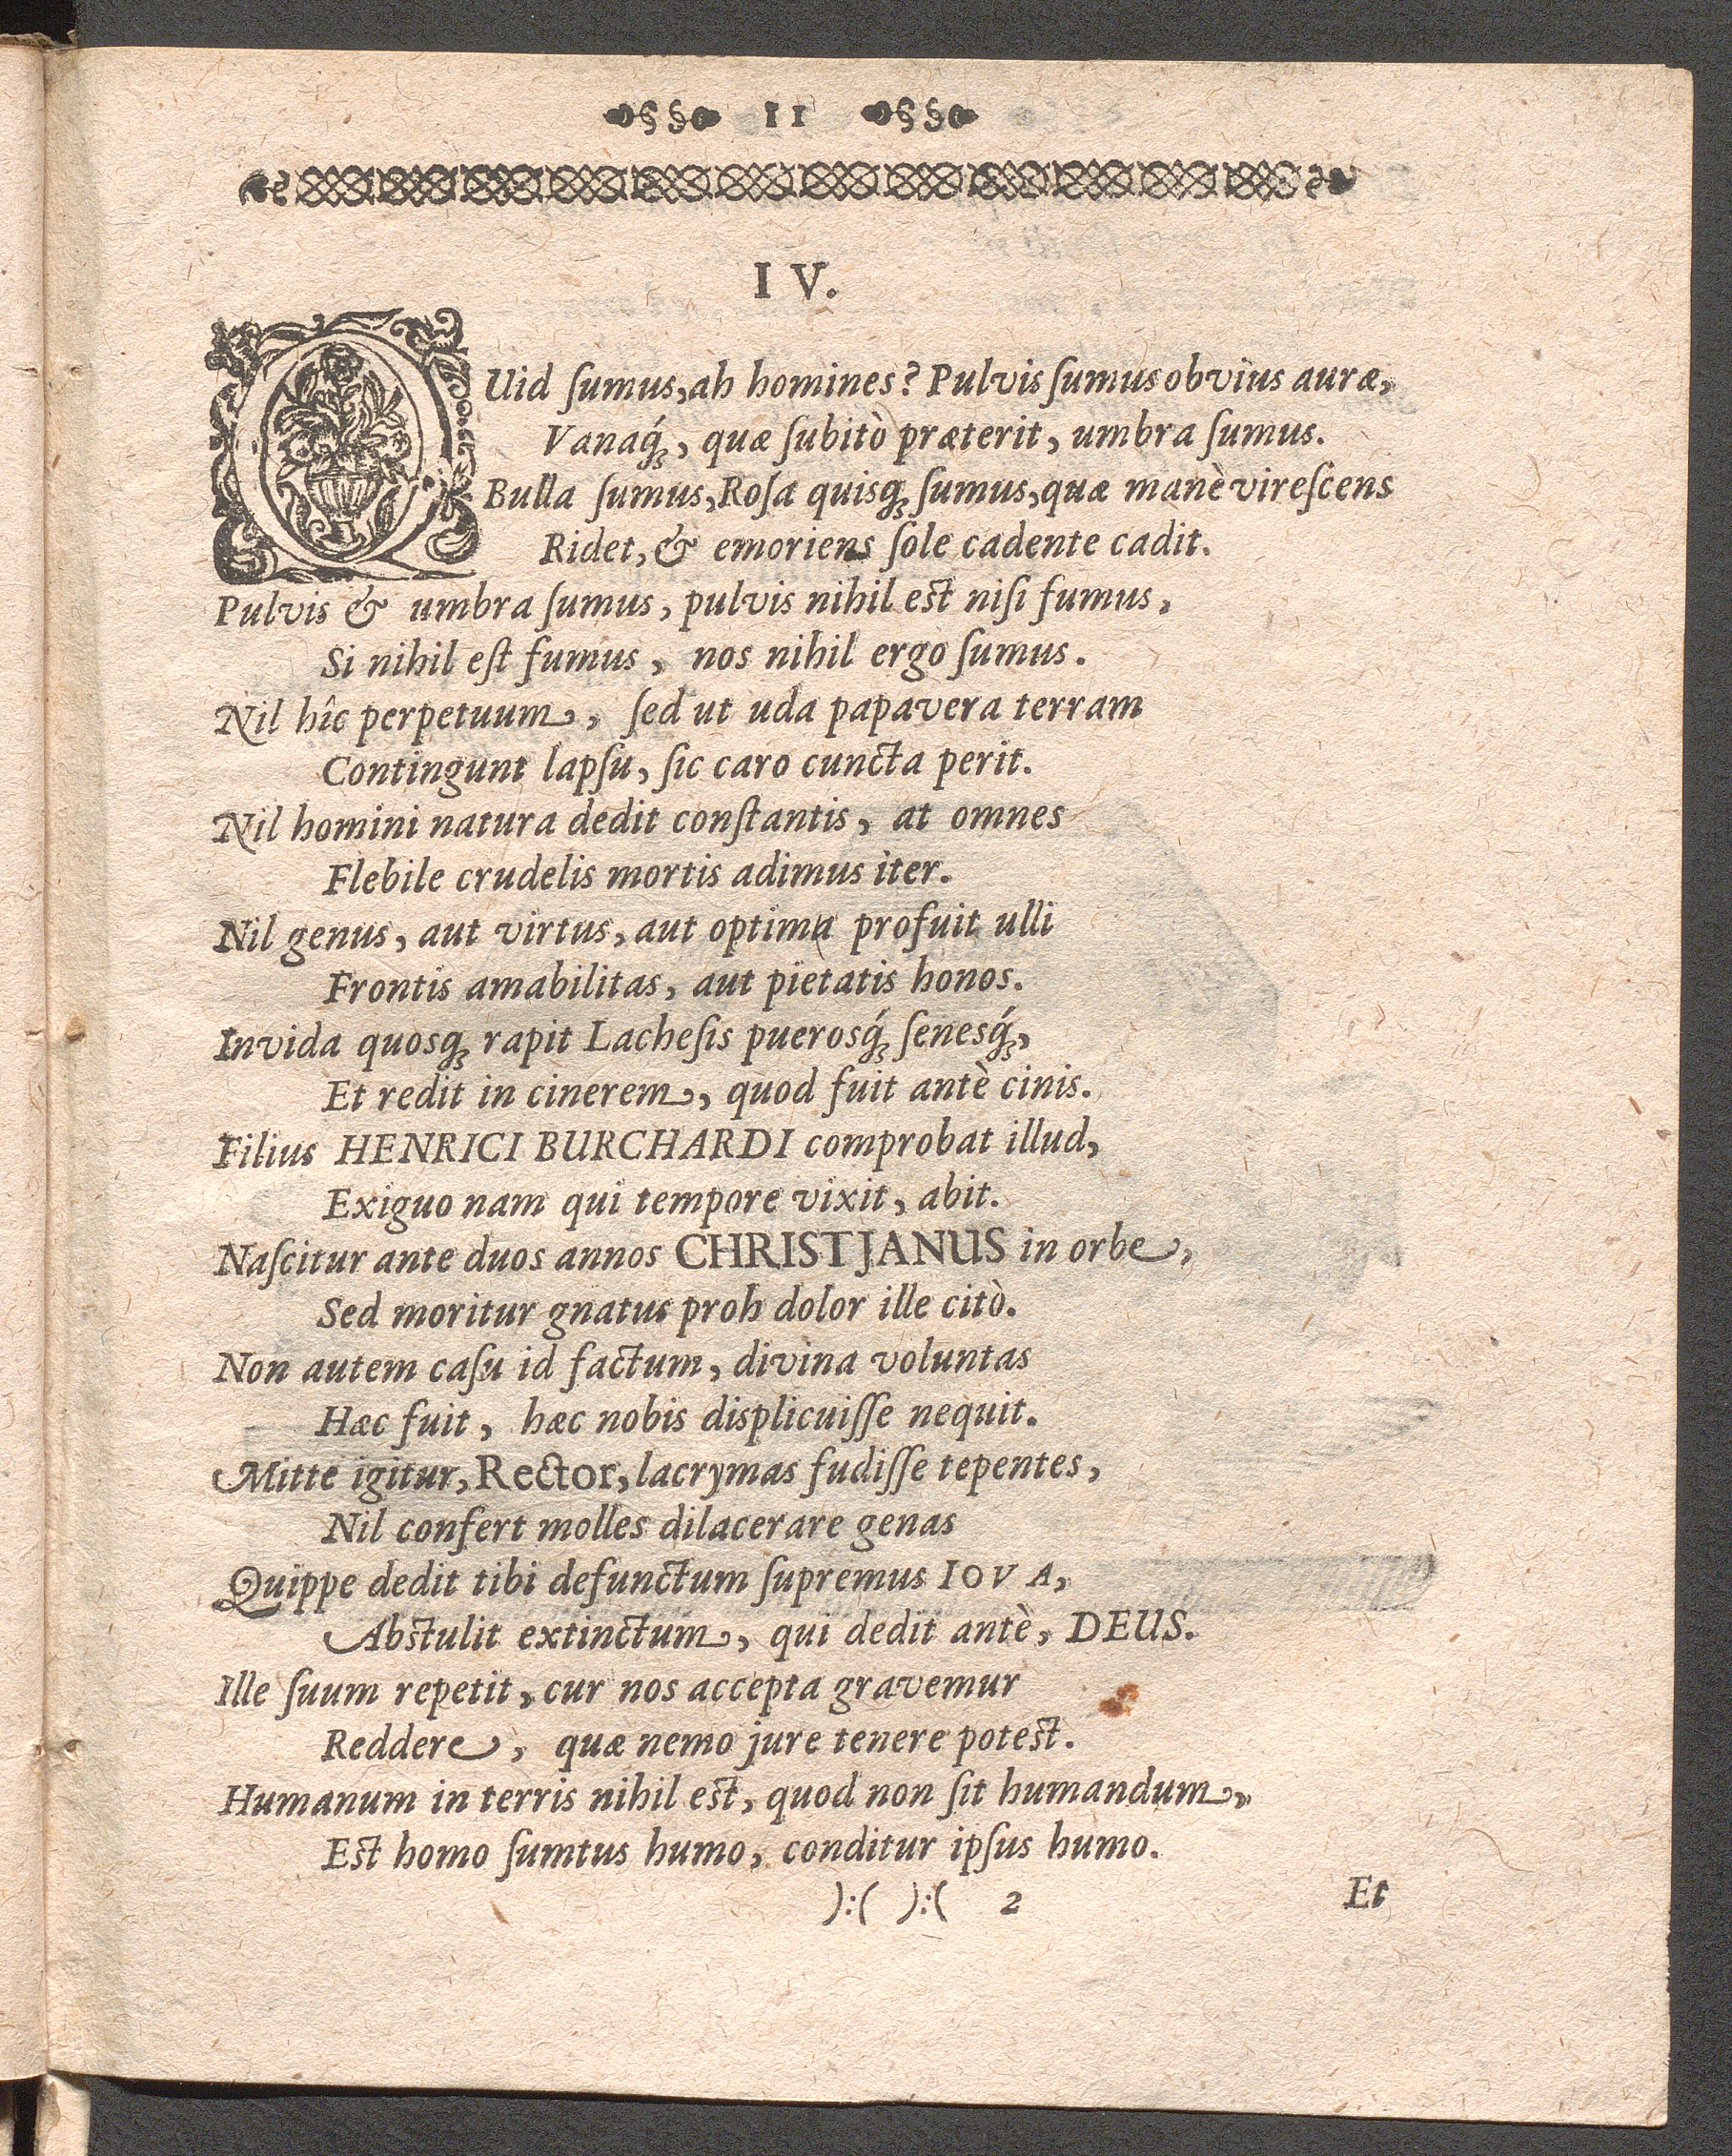 11
IV.
QUid ſumus, ah homines? Pulvis ſumus obvius auræ,
Vanaq́ꝫ, quæ ſubitò præterit, umbra ſumus.
Bulla ſumus, Roſa quisqꝫ ſumus, quæ manè vireſcens
Ridet, & emoriens ſole cadente cadit.
Pulvis & umbra ſumus, pulvis nihil eſt niſi fumus,
Si nihil eſt fumus, nos nihil ergo ſumus.
Nil hîc perpetuum, ſed ut uda papavera terram
Contingunt lapſu, ſic caro cuncta perit.
Nil homini natura dedit conſtantis, at omnes
Flebile crudelis mortis adimus iter.
Nil genus, aut virtus, aut optima profuit ulli
Frontis amabilitas, aut pietatis honos.
Invida quosqꝫ rapit Lacheſis puerosq́ꝫ ſenesq́ꝫ,
Et redit in cinerem, quod fuit antè cinis.
Filius HENRICI BURCHARDI comprobat illud,
Exiguo nam qui tempore vixit, abit.
Naſcitur ante duos annos CHRISTJANUS in orbe,
Sed moritur gnatus proh dolor ille citò.
Non autem caſu id factum, divina voluntas
Hæc fuit, hæc nobis displicuiſſe nequit.
Mitte igitur, Rector, lacrymas fudiſſe tepentes,
Nil confert molles dilacerare genas
Quippe dedit tibi defunctum ſupremus IOVA,
Abſtulit extinctum, qui dedit antè, DEUS.
Ille ſuum repetit, cur nos accepta gravemur
Reddere, quæ nemo jure tenere poteſt.
Humanum in terris nihil eſt, quod non ſit humandum,
Eſt homo ſumtus humo, conditur ipſus humo.
):( ):( 2 Et